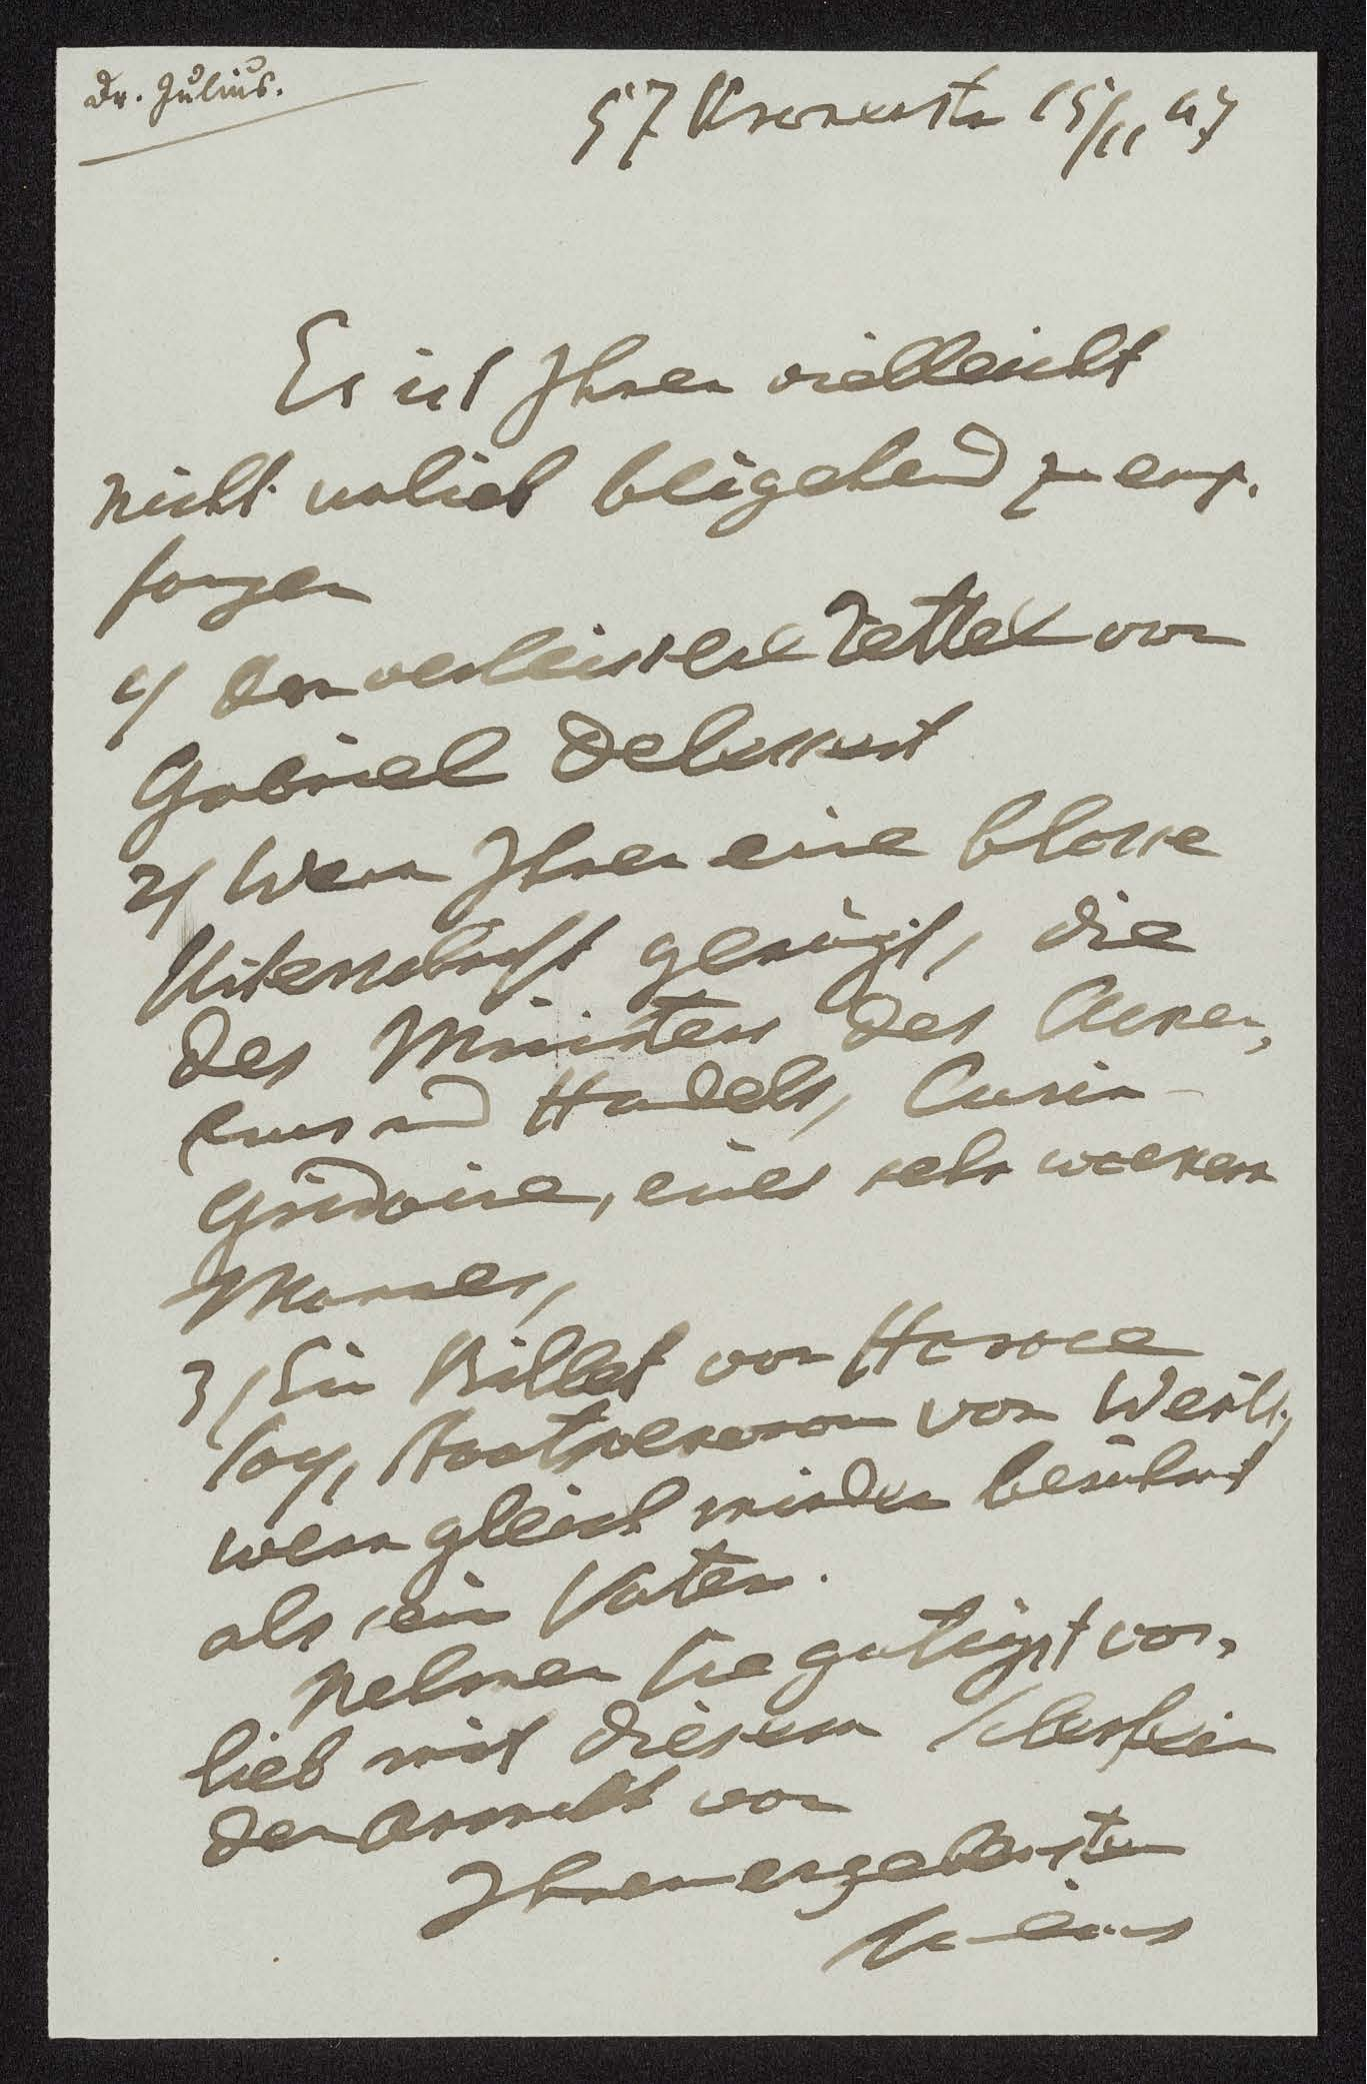 Dr. Julius.
57 Kronenstr 15/11 47
Es ist Ihnen vielleicht
nicht unlieb beigehend zu emp-
fangen
1/ den verheissenen Zettel von
Gabriel Delessert
2/ Wenn Ihnen eine blosse
Unterschrift genügt, die
des Ministers des Acker,
baus und Handels, Cunin-
Gridaine, eines sehr wackern
Mannes,
3/ Ein Billet von Horace
Say, Staatsoeconom von Werth,
wenn gleich minder berühmt
als sein Vater.
Nehmen Sie gütigst vor,
lieb mit diesem Scherflein
der Armuth von
Ihrem ergebensten
Julius